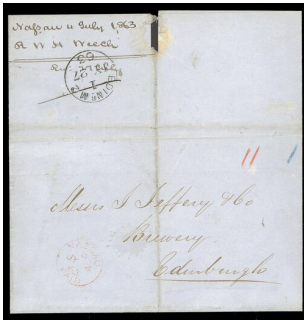 Nassau 4 July 1863
R W H Weech
EDINR
1
27
63
11
1
Messrs J Jeffery & Co
Brewery
Edinburgh